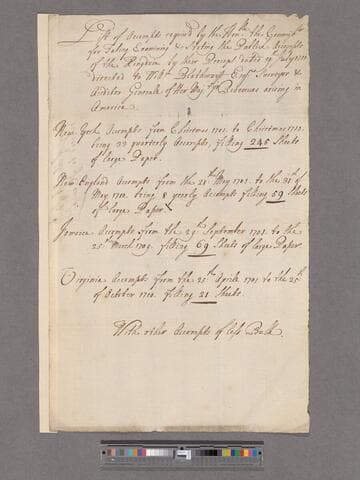 List of Accompts required by the Hon:ble the Committ:ee
for Taking Examining & Stating the Publick Accompts
of the Kingdom by their Precept dated July 1711
directed to Will:m Blathwayt Esq:r Surveyor &
Auditor Generall of Her Maj:tys Revenues arising in
America.
New York Accompts from Christmas 1702. to Christmas 1710.
being 33 quarterly Accompts, filling 245 Sheets
of large Paper.
New England Accompts from the 25th May 1702. to the 31st of
May 1710. being 8 yearly Accompts filling 59 Sheets
of large Paper
Jamaica Accompts from the 29th September 1701. to the
25th March 1709. filling 69 Sheets of large Paper
Virginia Accompts from the 25th April 1701 to the 25th
of October 1710. filling 21 Sheets.
With other Accompts of less Bulk.